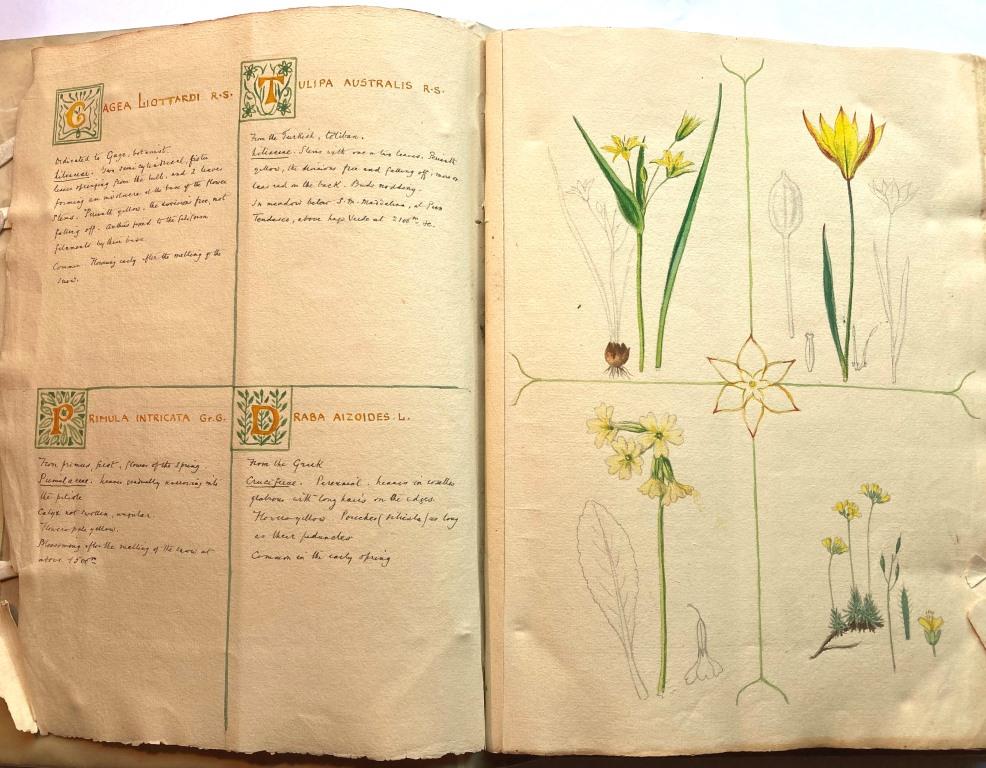 GAGEA LIOTTARDI R.S.
Dedicated to Gage, botanist.
Liliaceae. Two semi cylindrical, fistular
leaves springing from the bulb, and 2 leaves
forming an involucre at the base of the flower
Stems. Perianth yellow, the divisions free, not
falling off. Anthers fixed to the filiform
filaments by their base
Common. Flowering early after the melting of the
snow.
TULIPA AUSTRALIS R.S.
From the Turkish, toliban.
Liliaceae. Stems with one or two leaves. Perianth
yellow, the divisions free and falling off, more or
less red on the back. Buds nodding.
In meadow below S.M. Maddalena, at Pian
Tendasco, above Lago Verde at 2100m
PRIMULA INTRICATA Gr.G.
From primus, first, flower of the spring
Primulaceae. Leaves gradually narrowing into
the petiole
Calyx not swollen, angular.
Flowers pale yellow.
Blossoming after the melting of the snow at
above 1500m
DRABA AIZOIDES L.
From the Greek
Cruciferae. Perennial. Leaves in rosettes
glabrous with long hairs on the edges.
Flowers yellow. Pouches (silicula) as long
as their peduncles
Common in the early spring